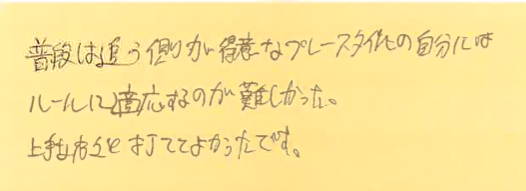 普段は追う側が得意なプレースタイルの自分には
ルールに適応するのが難しかった。
上手な方と打ててよかったです。